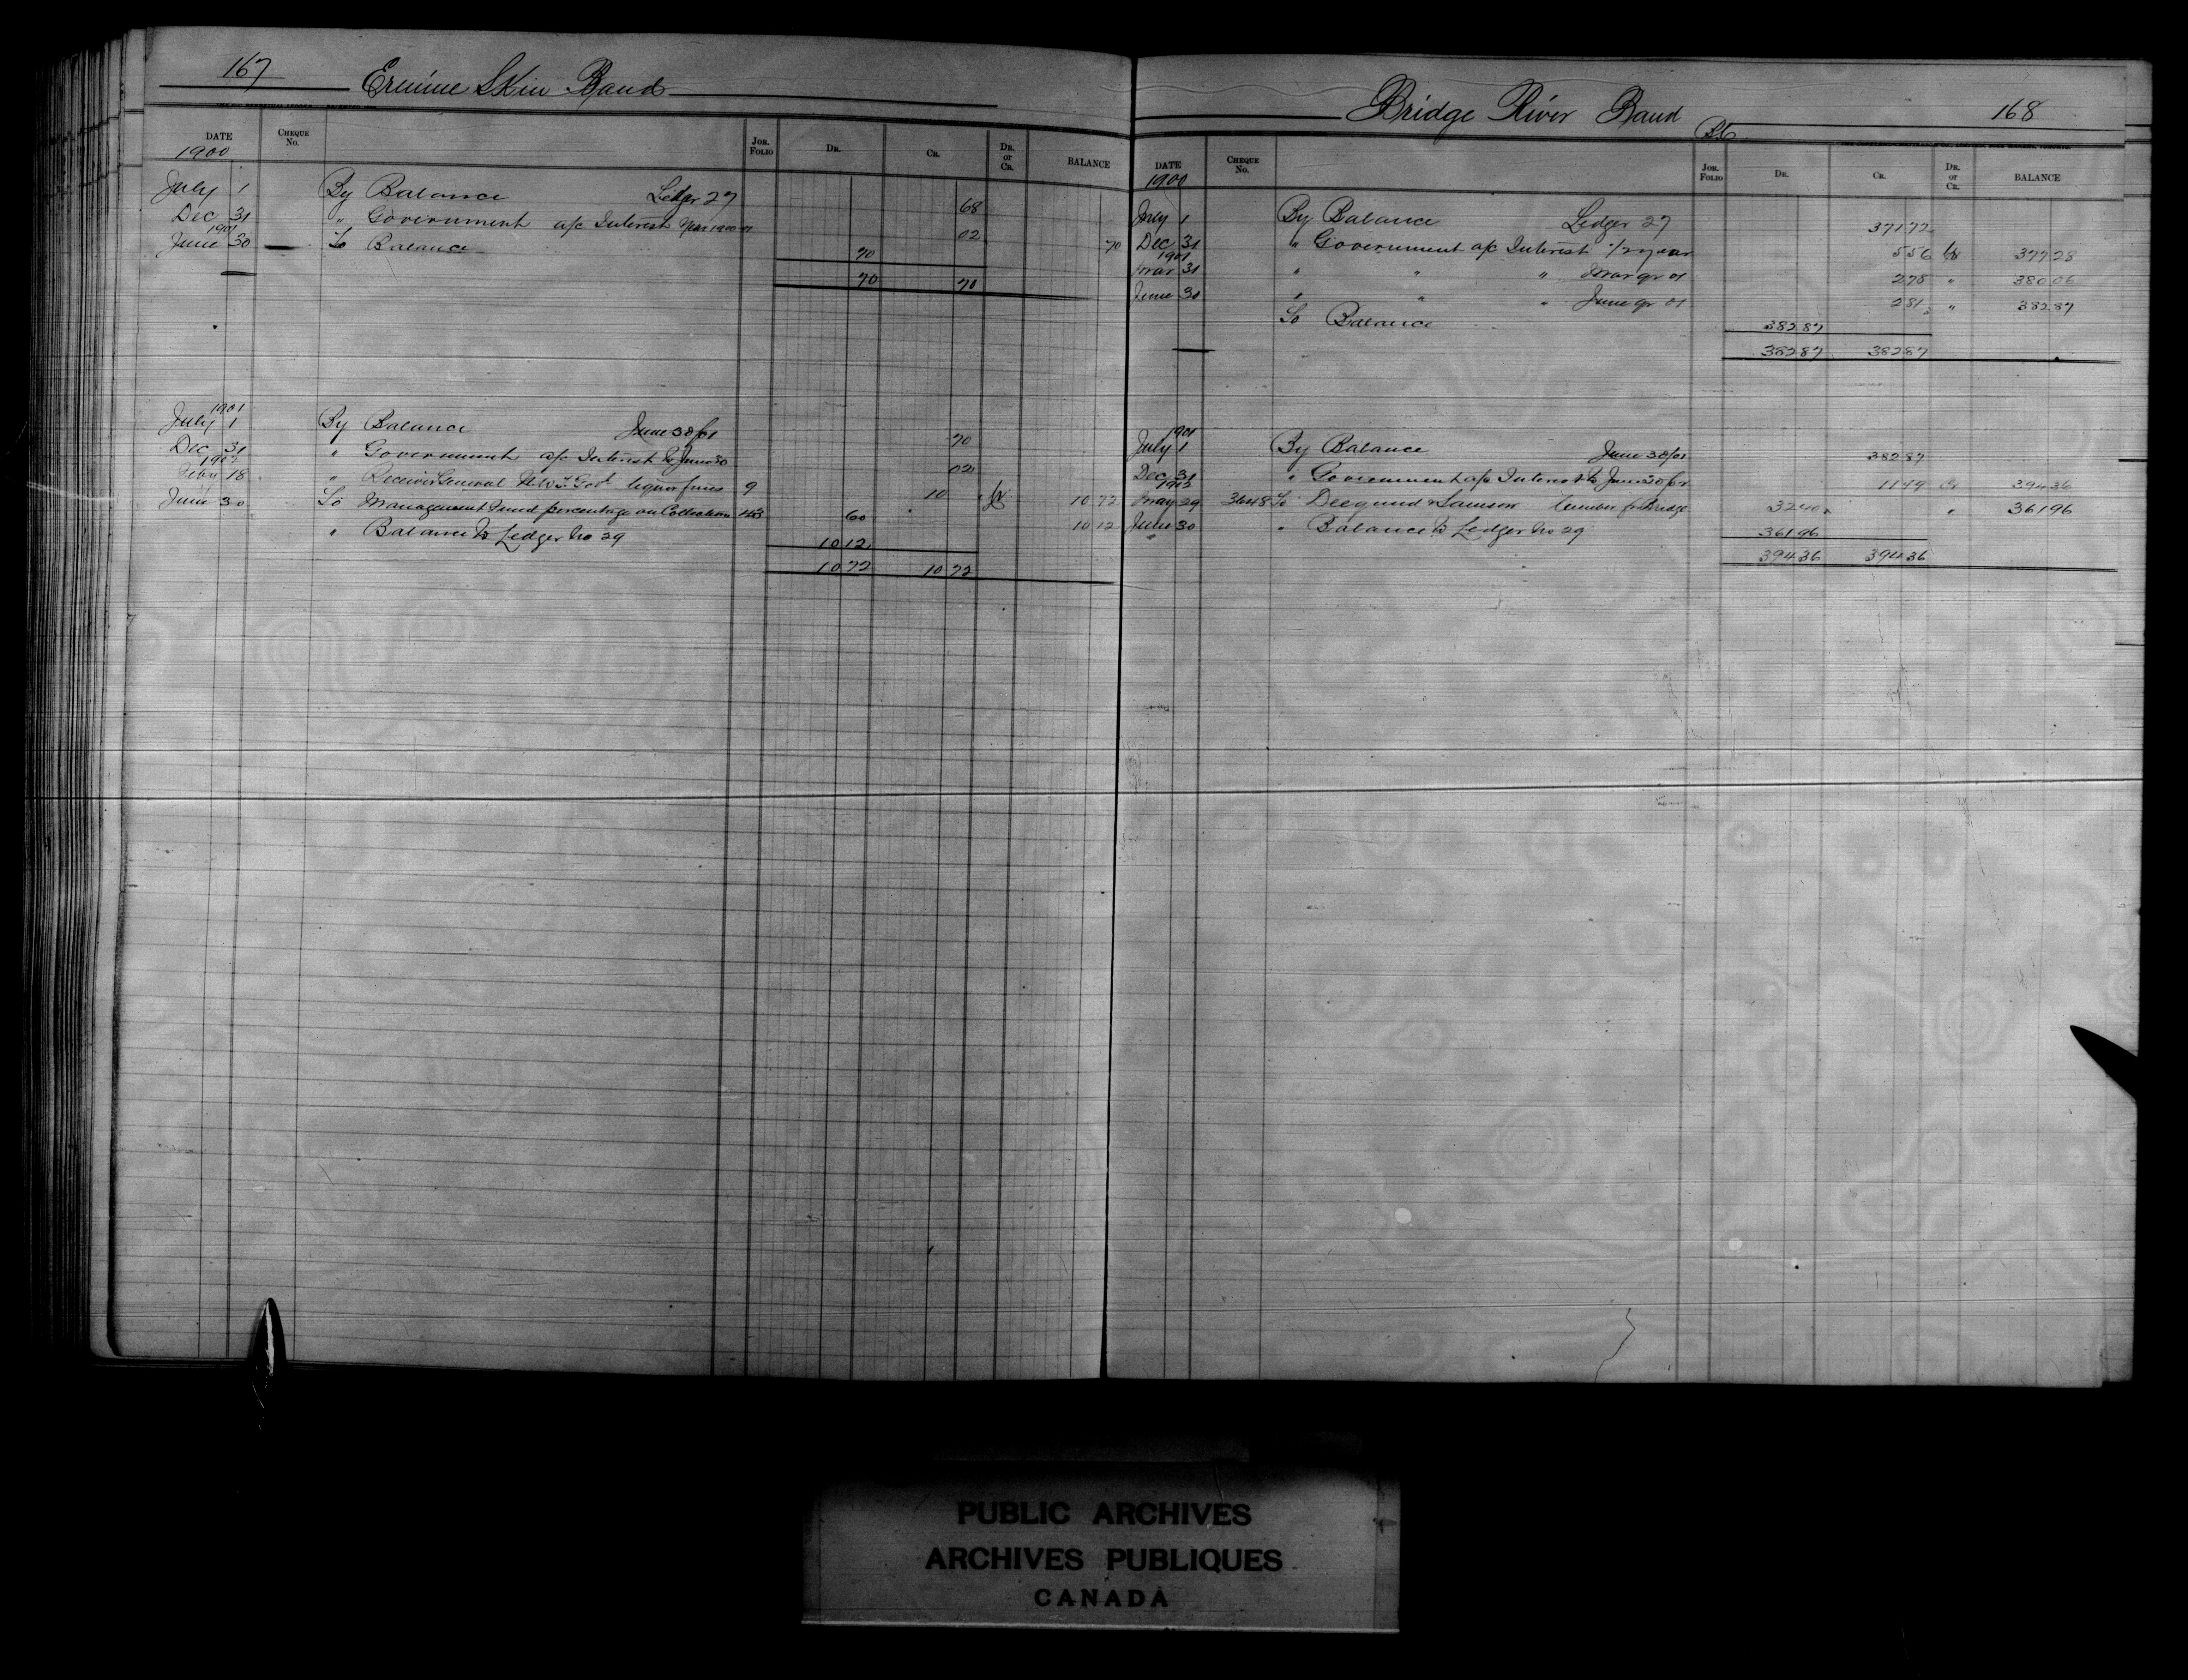 167 Ermine Skin Band
DATE CHEQUE No. JOR. FOLIO DR. CR. DR. or CR. BALANCE
1900
July 1 By Balance Ledger 27 68
Dec 31 " Government a/c Interest Year 1900-01 02
1901
June 30 To Balance 70 70
70 70
1901
July 1 By Balance June 30/01 70
Dec 31 " Government a/c Interest to June 30 02
1902
Feby 18 " Receiver General N.W.T. Govt liquor fines 9 10 Cr 10 72
June 30 To Management Fund percentage on Collection 60 10 12
" Balance to Ledger No 29 10 12
10 72 10 72
Bridge River Band B.C. 168
DATE CHEQUE No. JOR. FOLIO DR. CR. DR. or CR. BALANCE
1900
July 1 By Balance Ledger 27 371 72
Dec 31 " Government a/c Interest 1/2 year 5 56 Cr 377 28
1901
Mar 31 " " " Mar qr 01 2 78 " 380 06
June 30 " " " June qr 01 2 81 " 382 87
To Balance 382 87
382 87 382 87
1901
July 1 By Balance June 30/01 382 87
Dec 31 " Government a/c Interest to June 30 11 49 Cr 394 36
1902
May 29 3648 To Samson lumber for Bridge 32 40 " 361 96
June 30 " Balance to Ledger No 29 361 96
394 36 394 36
PUBLIC ARCHIVES
ARCHIVES PUBLIQUES
CANADA